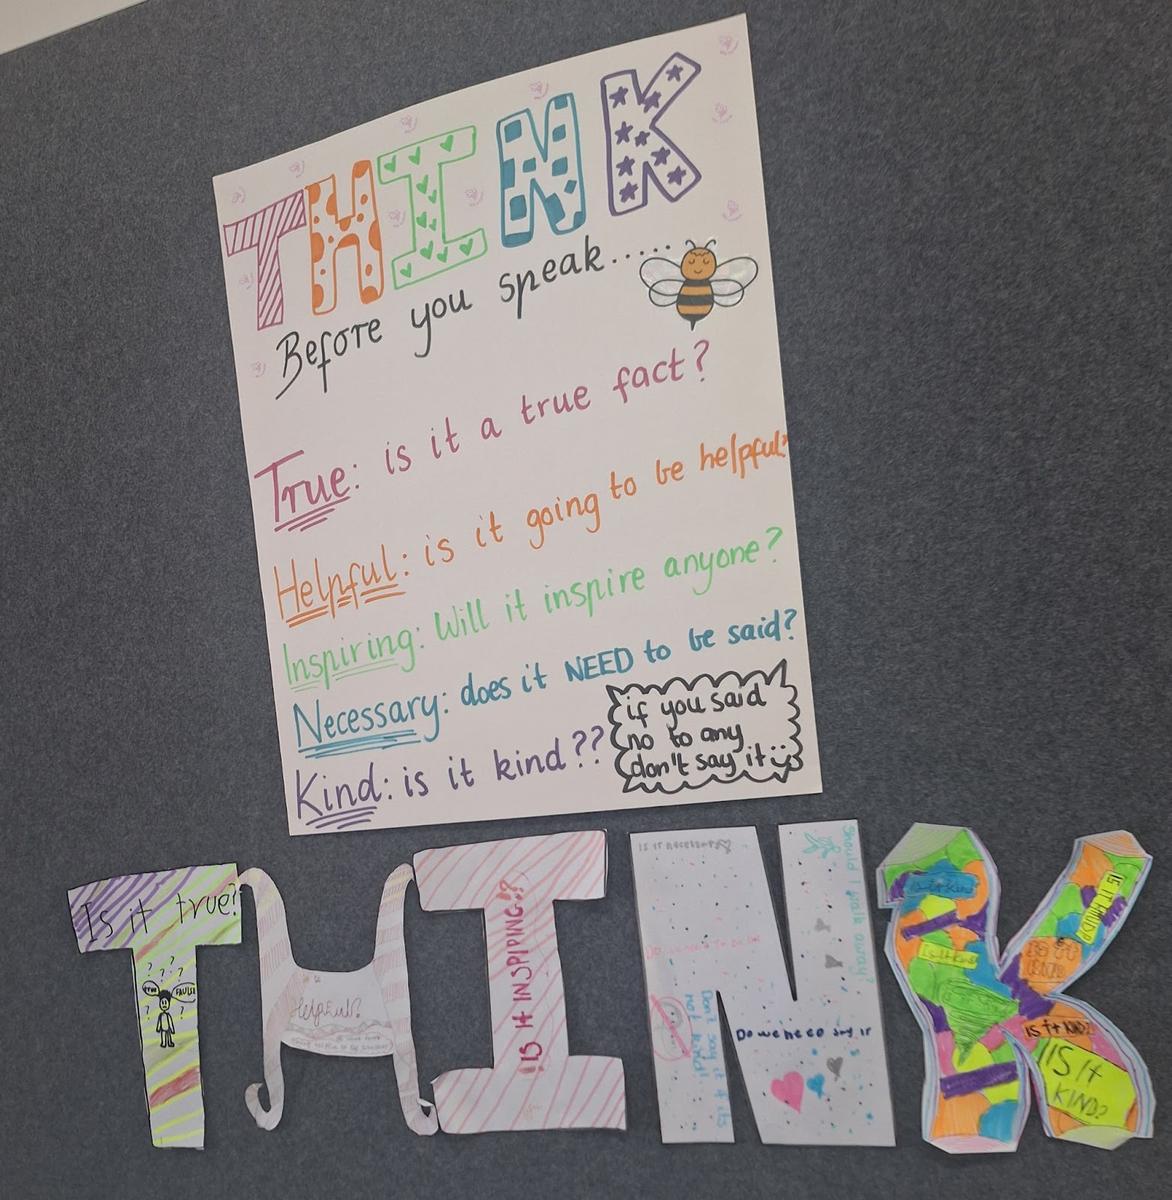 THINK
Before you speak.....
True: is it a true fact?
Helpful: is it going to be helpful?
Inspiring: Will it inspire anyone?
Necessary: does it NEED to be said?
Kind: is it kind??
if you said
no to any
don't say it
THINK
Is it true?
? ? ? ?
TRUE FAULSE
? ?
Helpful?
IS IT INSPIPING??
Is it necessary
Do we need to be
Don't say it if its
not kind!
Should I walk away?
Do we need say it
Is it kind
Is it kind
IS IT KIND?
IS IT
KIND
IS it KIND?
IS It
KIND?